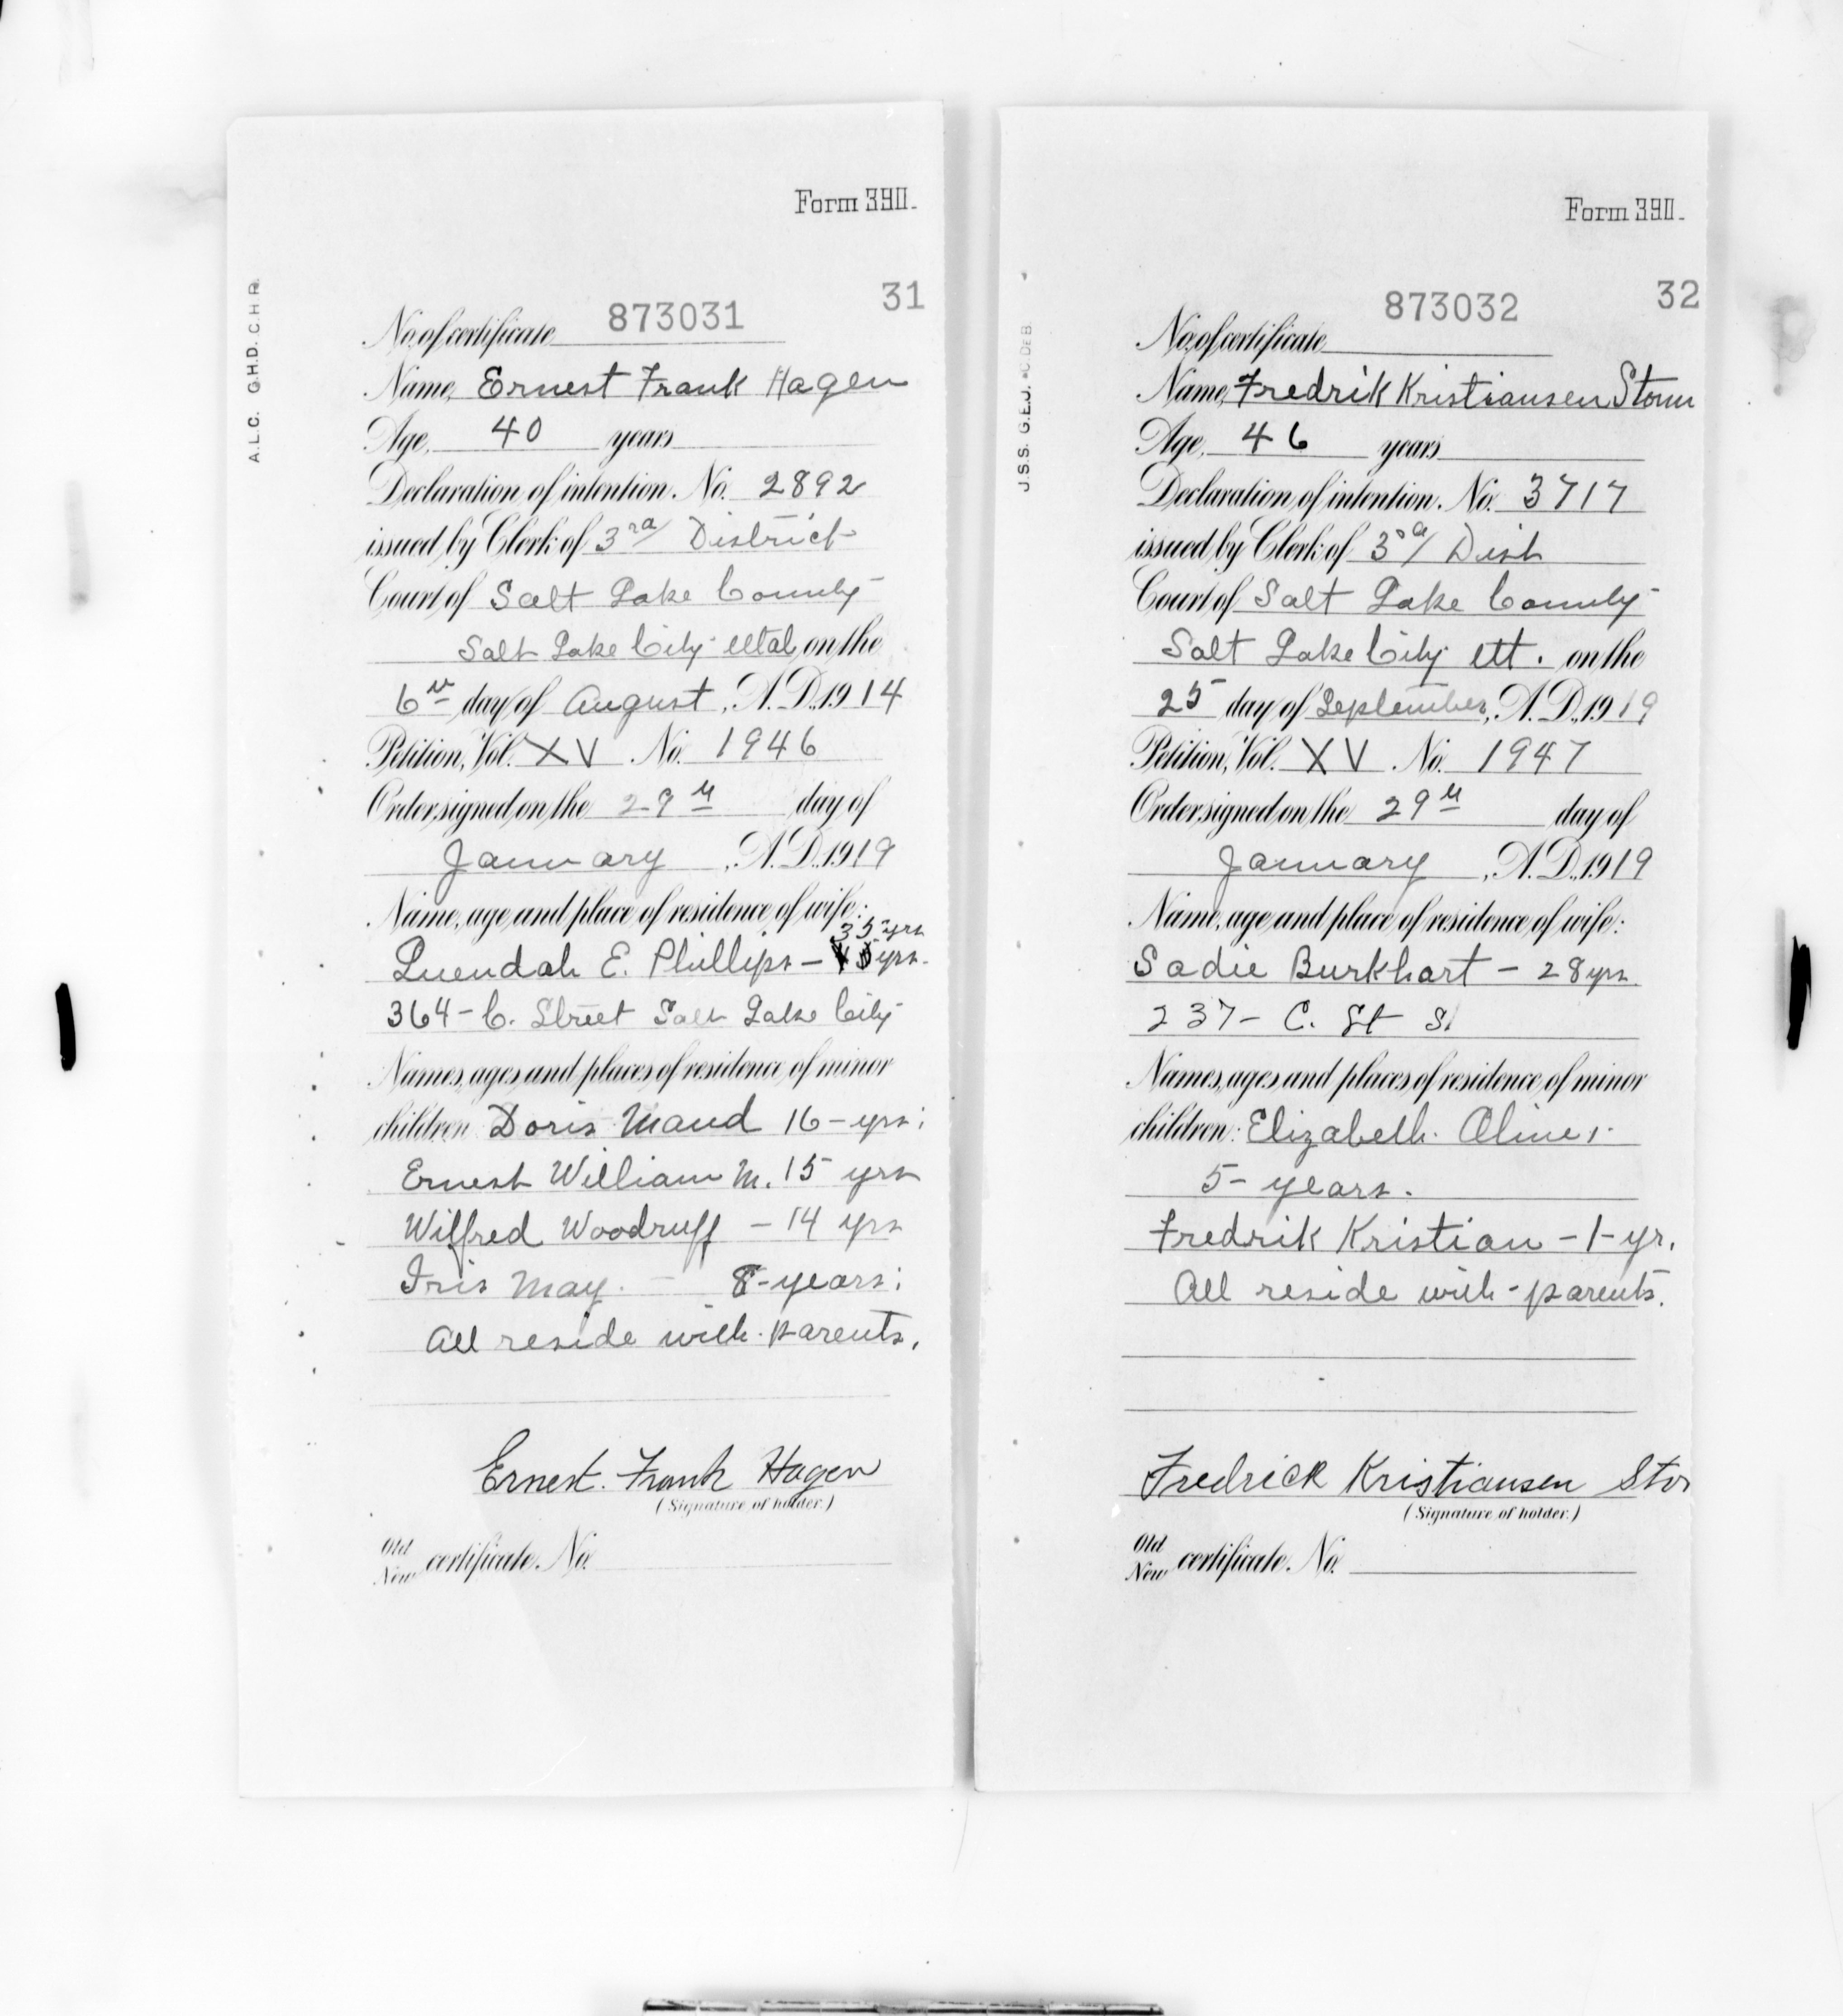 Form 390.
31
A.L.C. G.H.D. C.H.R.
No. of certificate 873031
Name, Ernest Frank Hagen
Age, 40 years
Declaration of intention. No. 2892
issued by Clerk of 3rd District
Court of Salt Lake County
Salt Lake City Utah, on the
6th day of August, A.D. 1914
Petition, Vol. XV. No. 1946
Order signed on the 29th day of
January, A.D. 1919
Name, age and place of residence of wife:
35 yrs
Luendah E. Phillips - yrs.
364 - C. Street Salt Lake City
Names, ages and places of residence of minor
children Doris Maud 16 - yrs;
Ernest William M. 15 yrs
Wilfred Woodruff - 14 yrs
Iris May. - 8 - years;
All reside with parents.
Ernest. Frank Hagen
(Signature of holder.)
Old
New certificate. No.
Form 390.
32
J.S.S. G.E.J.
No. of certificate 873032
Name, Fredrik Kristiansen Storm
Age, 46 years
Declaration of intention. No. 3717
issued by Clerk of 3rd Dist
Court of Salt Lake County
Salt Lake City Ut. on the
25 day of September, A.D. 1919
Petition, Vol. XV. No. 1947
Order signed on the 29th day of
January, A.D. 1919
Name, age and place of residence of wife:
Sadie Burkhart - 28 yrs.
237 - C. St S.
Names, ages and places of residence of minor
children: Elizabeth Oline,
5 - years.
Fredrik Kristian - 1 - yr.
All reside with - parents.
Fredrick Kristiansen Stor
(Signature of holder.)
Old
New certificate. No.